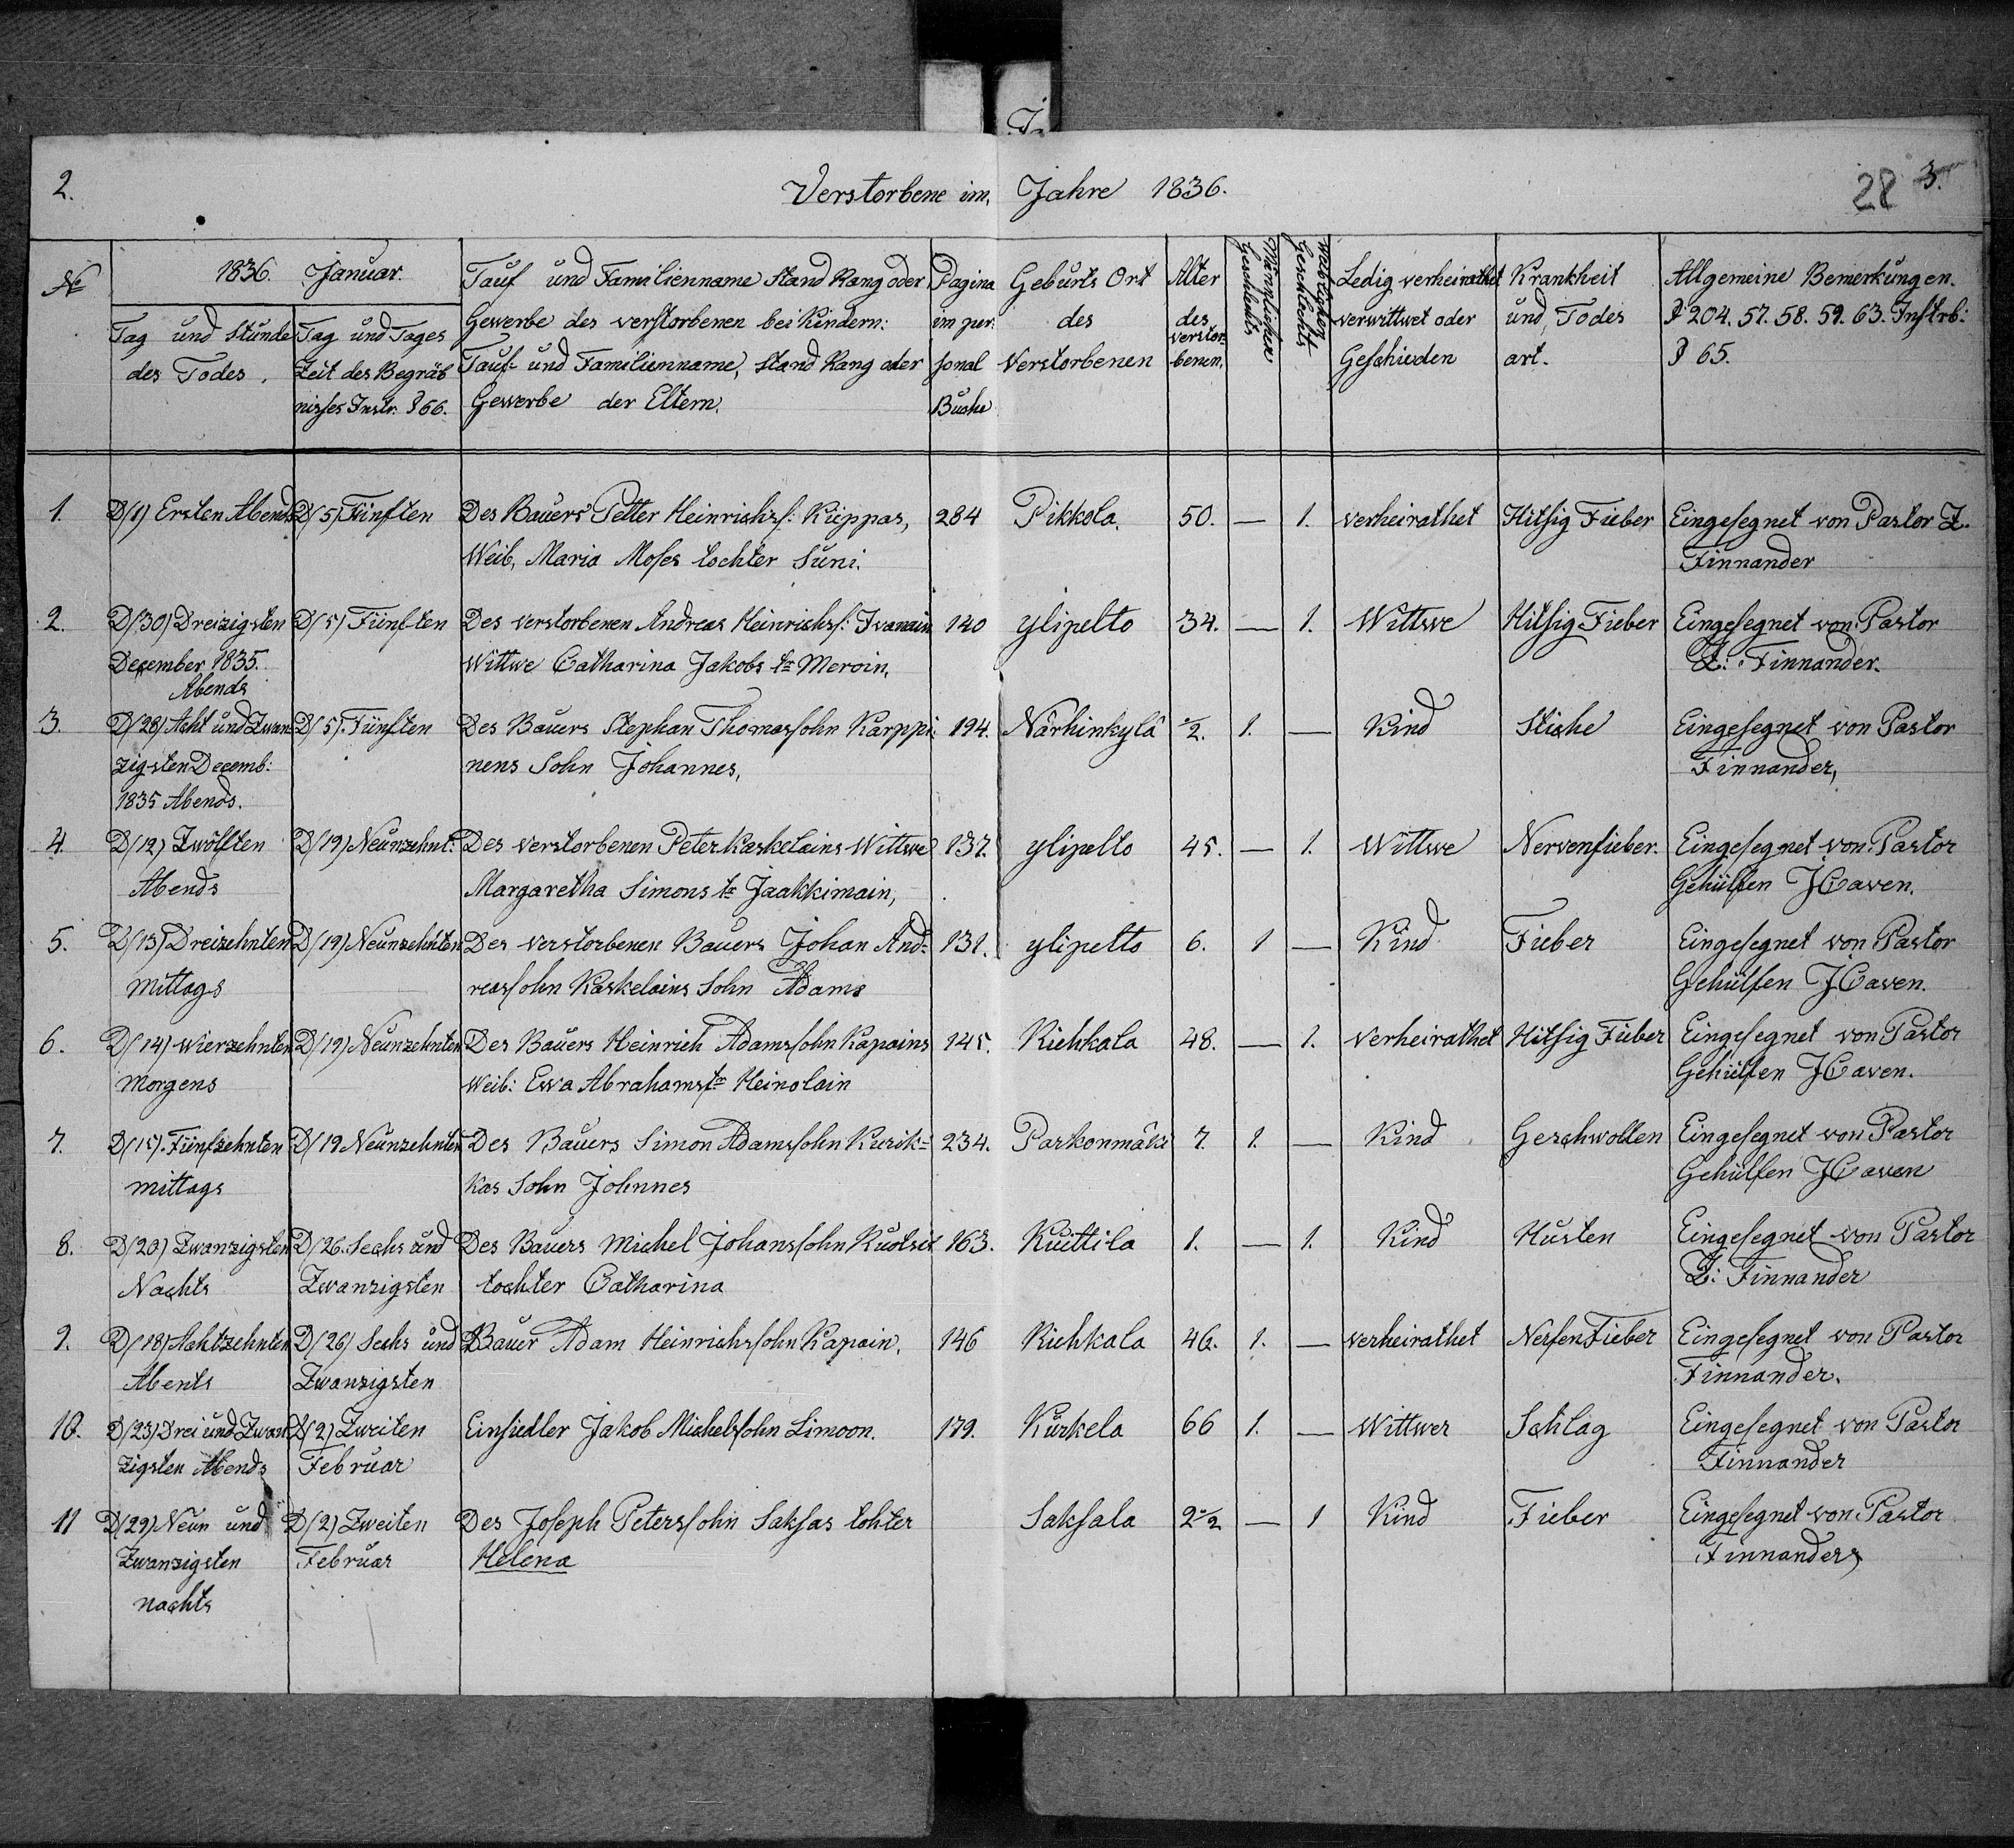 2.
Verstorbene im, Jahre 1836.
28 3.
№
1836. Januar.
Tag und Stunde
des Todes.
Tag und Tages
Zeit des Begräb
nisses Instr. § 66.
Tauf und Familienname Stand Rang oder
Gewerbe des verstorbenen bei Kindern:
Tauf- und Familienname, Stand Rang oder
Gewerbe der Eltern.
Pagina
im per:
sonal
Buche
Geburts Ort
des
Verstorbenen
Alter
des
verstor-
benen.
Männlichen
Geschlechts
Weiblichen
Geschlechts
Ledig verheirathet
verwittwet oder
Geschieden
Krankheit
und Todes
art.
Allgemeine Bemerkungen.
§ 204. 57. 58. 59. 63. Instrb:
§ 65.
1. D/1) Ersten Abends D/5) Fünften Des Bauers Petter Heinrichs: Kieppas, 284 Pikkola. 50. — 1. verheirathet Hitsig Fieber Eingesegnet von Pastor Z.
Weib, Maria Moses tochter Suni. Finnander
2. D/30) Dreizigsten D/5) Fünften Des verstorbenen Andreas Heinrichs: Ivanain 140 ylipelto 34. — 1. Wittwe Hitsig Fieber Eingesegnet von Pastor
December 1835. Wittwe Catharina Jakobs tr Meroin, Z: Finnander.
Abends
3. D/28) Acht und Zwan D/5). Fünften Des Bauers Stephan Thomassohn Karppi: 194. Närhinkylä ½. 1. — Kind Stiche Eingesegnet von Pastor
zigsten Decemb: nens Sohn Johannes, Finnander,
1835 Abends.
4. D/12) Zwölften D/19) Neunzehnt: Des verstorbenen Peter Kaskelains Wittwe 137. ylipelto 45. — 1. Wittwe Nervenfieber. Eingesegnet von Pastor
Abends Margaretha Simons tr Jaakkimain, Gehülfen J Caven.
5. D/13) Dreizehnten D/19) Neunzehnten Des verstorbenen Bauers Johan And- 131. ylipelto 6. 1 — Kind Fieber Eingesegnet von Pastor
mittags reassohn Kaskelains Sohn Adams Gehülfen J Caven.
6. D/14) Wierzehnten D/19) Neunzehnten Des Bauers Heinrich Adamssohn Kapains 145. Kiehkala 48. — 1. verheirathet Hitsig Fieber Eingesegnet von Pastor
Morgens Weib: Ewa Abrahamstr Heinolain Gehülfen J Caven.
7. D/15). Fünfzehnten D/19 Neunzehnten Des Bauers Simon Adamssohn Kurik- 234. Paskonmäki 7. 1. — Kind Geschwollen Eingesegnet von Pastor
mittags kas Sohn Johnnes Gehülfen J Caven
8. D/20) Zwanzigsten D/26. Sechs und Des Bauers Michel Johanssohn Kuotsit 163. Kuittila 1. — 1. Kind Husten Eingesegnet von Pastor
Nachts Zwanzigsten tochter Catharina Z: Finnander
9. D/18) Achtzehnten D/26) Sechs und Bauer Adam Heinrichssohn Kapain. 146 Kiehkala 46. 1. — verheirathet Nerfen Fieber Eingesegnet von Pastor
Abents Zwanzigsten Finnander.
10. D/23) Drei und Zwan D/2) Zweiten Einsiedler Jakob Michelssohn Limoon. 179. Kurkela 66 1. — Wittwer Schlag Eingesegnet von Pastor
zigsten Abends Februar Finnander
11 D/29) Neun und D/2) Zweiten Des Joseph Peterssohn Saksas tohter Saksala 2½ — 1 Kind Fieber Eingesegnet von Pastor
Zwanzigsten Februar Helena Finnander,
nachts